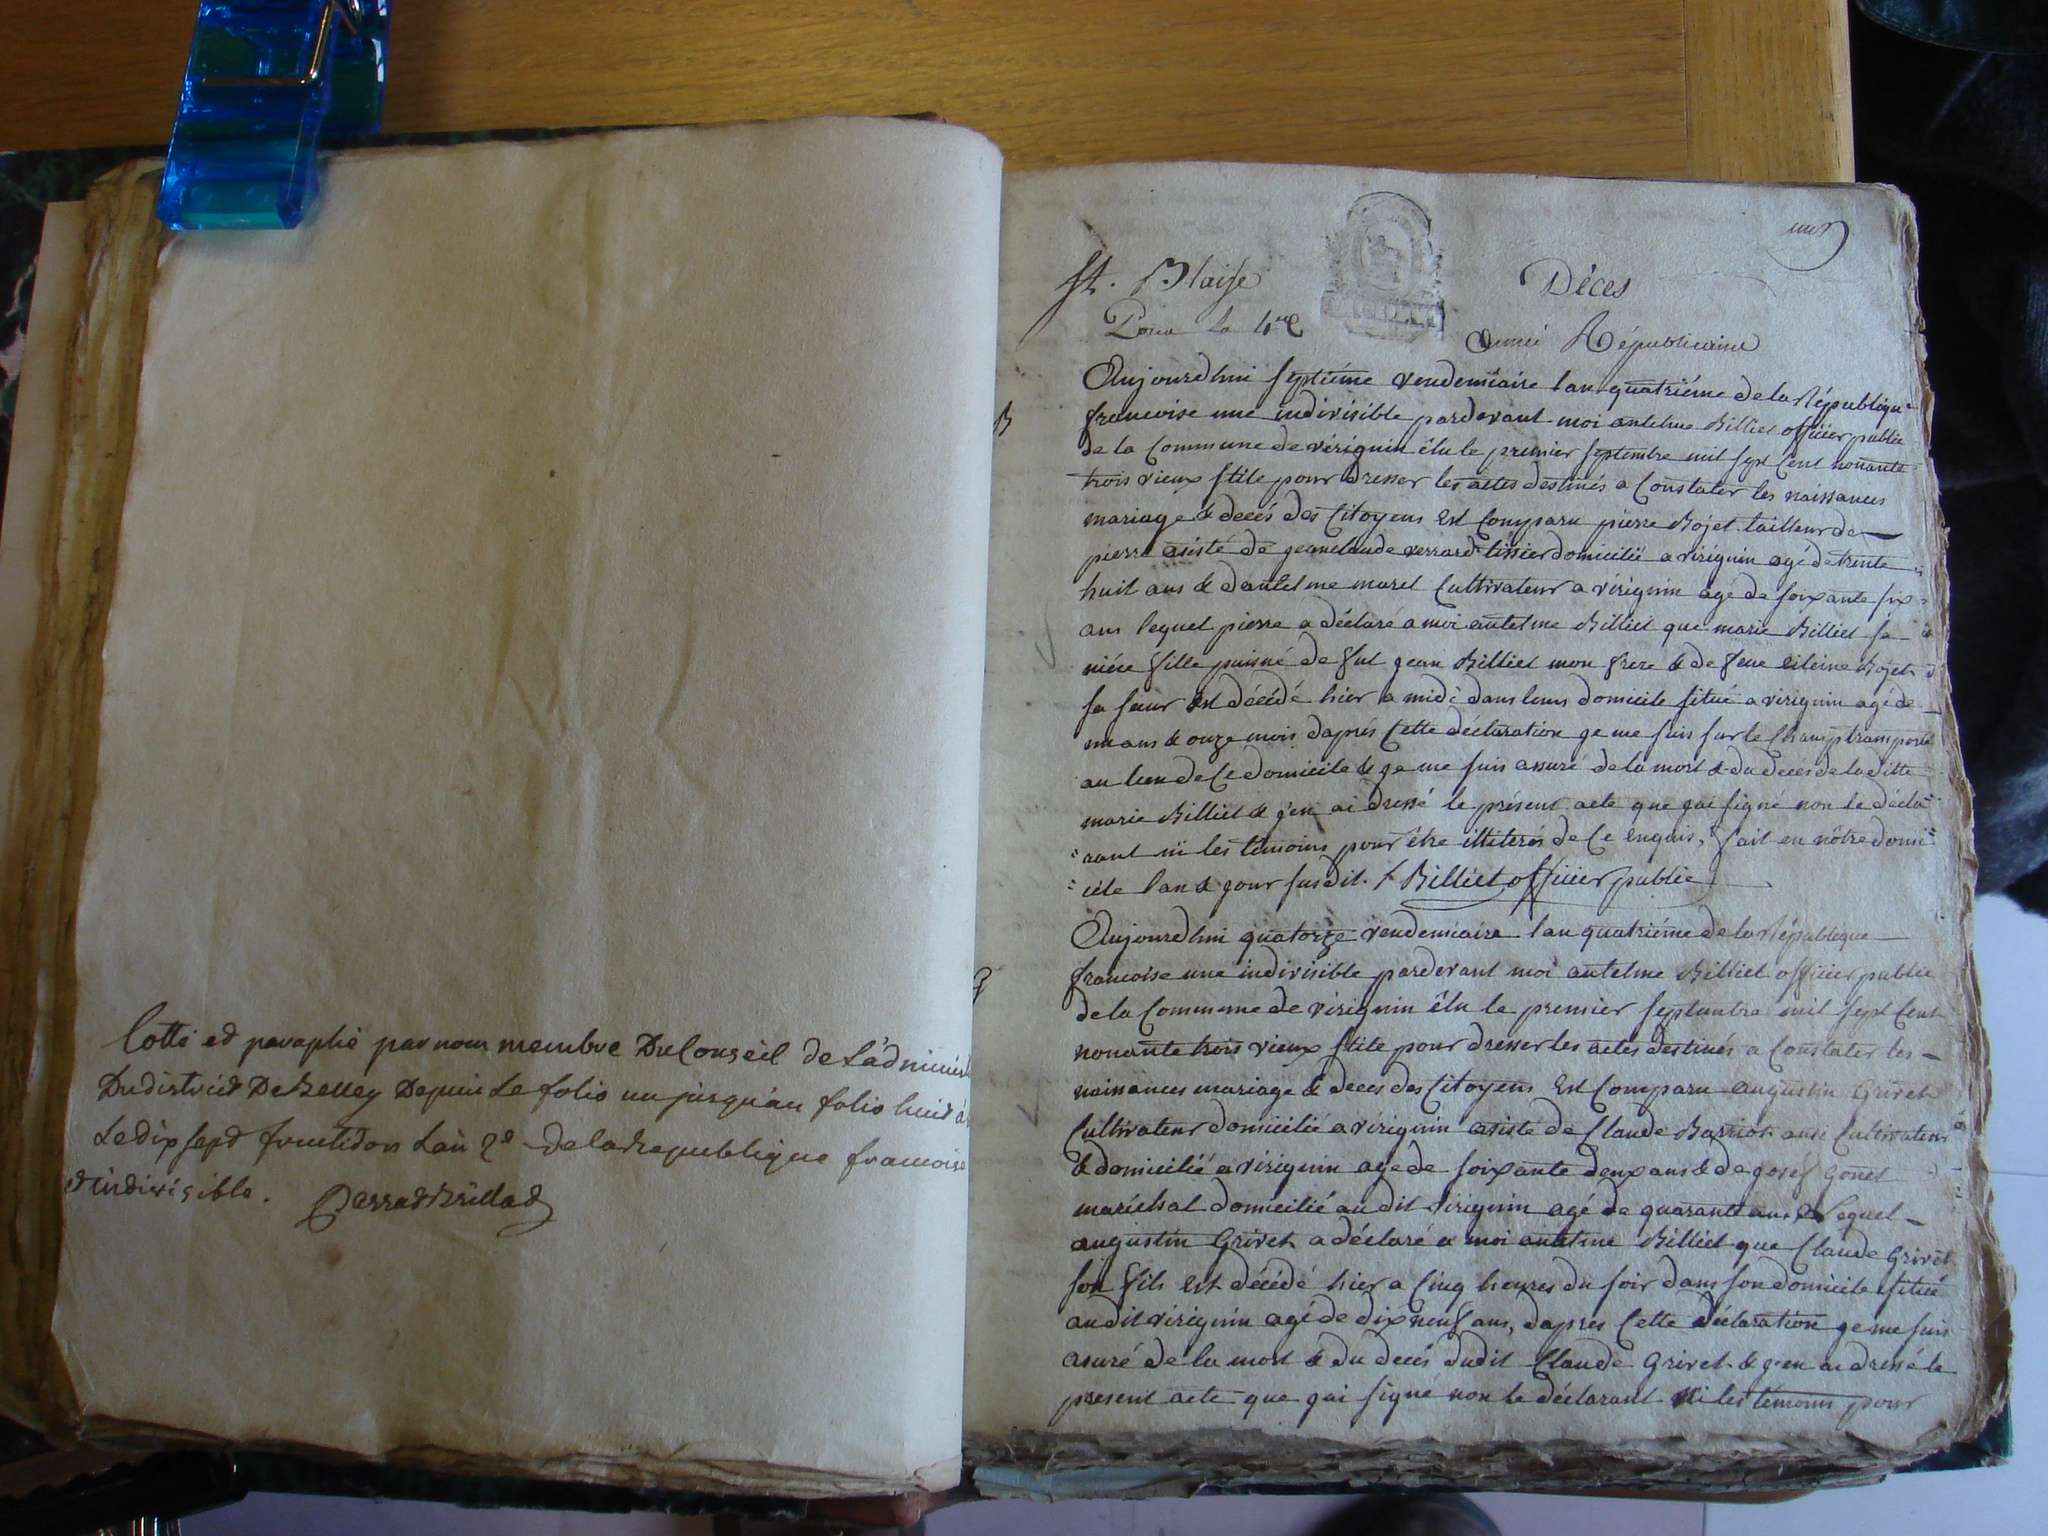 Cotté et paraphé par nous membre Du Conseil de L'administ
Du district De Belley Depuis Le folio un jusqu'au folio huit
Le dix sept fructidor L'an 2e de la Republique francoise
et indivisible.
un
St. Blaise
Décès
Pour la 4me
année Républicaine
B
Aujourdhui septiéme vendemiaire lan quatriéme de la République
francoise une indivisible pardevant moi antelme Billiet officier public
de la Commune de virignin élu le premier septembre mil sept Cent nonante
trois vieux stile pour dresser les actes destinés a Constater les naissances
mariage & decés des Citoyens Est Comparu pierre Bojet tailleur de
pierre asisté de jeanclaude verrard tissier domicilié a virignin agé de trente
huit ans & dantelme maret Cultivateur a virignin agé de soixante six
ans lequel pierre a déclaré a moi antelme Billiet que marie Billiet sa
niéce fille puisné de fut jean Billiet mon frere & de feue Bojet
sa sœur Est décédé hier a midi dans leurs domicile situé a virignin agé de
un ans & onze mois daprés Cette déclaration je me suis sur le Champ transporté
au lieu de Ce domicile & je me suis assuré de la mort & du decés de la ditte
marie Billiet & j'en ai dressé le présent acte que jai signé non le décla=
=rant ni les témoins pour être illiterés de Ce Enquis, fait en nôtre domi=
=cile lan & jour susdit. Billiet officier public
G
Aujourdhui quatorze vendemiaire lan quatriéme de la République
francoise une indivisible pardevant moi antelme Billiet officier public
de la Commune de virignin élu le premier septembre mil sept Cent
nonante trois vieux stile pour dresser les actes destinés a Constater les
naissances mariage & deces des Citoyens Est Comparu augustin Grivet
Cultivateur domicilié a virignin asisté de Claude Barriot ausi Cultivateur
& domicilié a virignin agé de soixante deux ans & de josef Gonet
maréchal domicilié au dit virignin agé de quarante ans Lequel
augustin Grivet a déclaré a moi antelme Billiet que Claude Grivet
son fils est décédé hier a Cinq heures du soir dans son domicile situé
au dit virignin agé de dix neuf ans, daprés Cette déclaration je me suis
asuré de la mort & du decés dudit Claude Grivet & j'en ai dressé le
present acte que jai signé non le déclarant ni les témoins pour